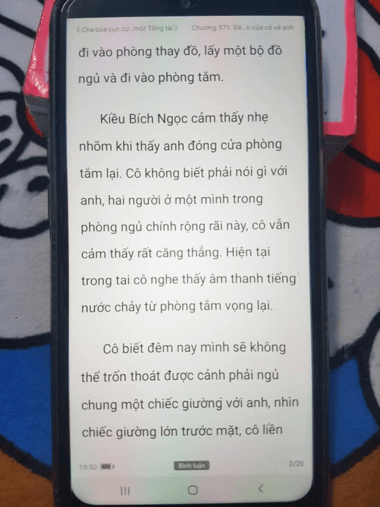 《 Cha của cục cư...một Tổng tài 》 Chương 571: Đê...n của cô và anh.
đi vào phòng thay đồ, lấy một bộ đồ
ngủ và đi vào phòng tắm.
Kiều Bích Ngọc cảm thấy nhẹ
nhõm khi thấy anh đóng cửa phòng
tắm lại. Cô không biết phải nói gì với
anh, hai người ở một mình trong
phòng ngủ chính rộng rãi này, cô vẫn
cảm thấy rất căng thẳng. Hiện tại
trong tai cô nghe thấy âm thanh tiếng
nước chảy từ phòng tắm vọng lại.
Cô biết đêm nay mình sẽ không
thể trốn thoát được cảnh phải ngủ
chung một chiếc giường với anh, nhìn
chiếc giường lớn trước mặt, cô liền
19:50 Bình luận 2/20